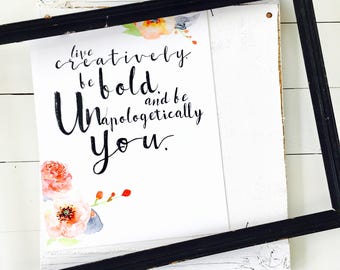 live
creatively.
be
bold.
and be
Unapologetically
you.